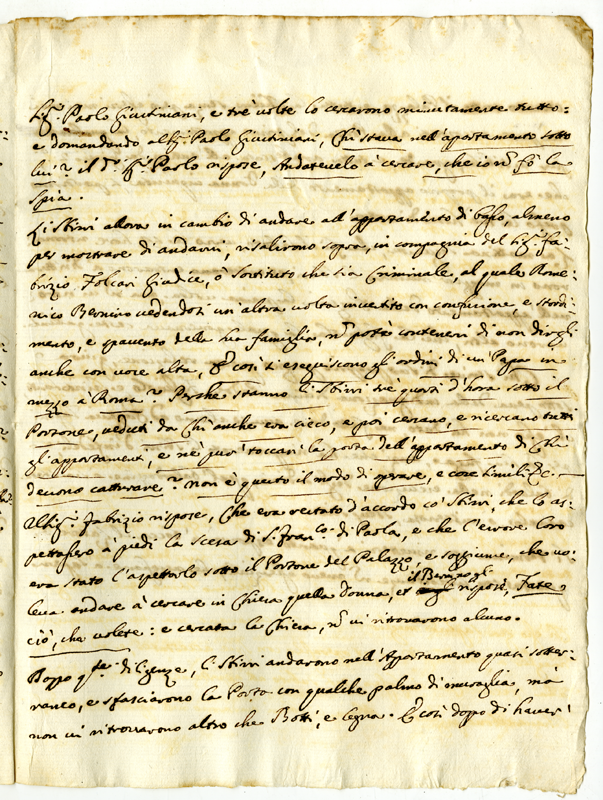 Sig.r Paolo Giustiniani, e trè volte lo cercarono minutamente tutto:
e domandando al Sig.r Paolo Giustiniani, Chi stava nell'apartamento sotto
lui? il d.o Sig.r Paolo rispose, Andatevelo à cercare, che io nō fò la
spia.
Li Sbirri allora in cambio di andare all'appartamento di basso, almeno
per mostrare di andarvi, risalirono sopra, in compagnia del Sig.r Fa-
brizio Folcari Giudice, ò Sostituto che sia Criminale, al quale Dome-
nico Bernino vedendosi un'altra volta investito con confusione, e stordi-
mento, e spavento della sua famiglia, nō potè contenersi di non dirgli
anche con voce alta, E così si eseguiscono gli ordini di un Papa in
mezzo à Roma? Perche stanno li Sbirri trè quarti d'hora sotto il
Portone, veduti da Chi anche era cieco, e poi cercano, e ricercano tutti
gli appartamenti, e nè pur toccasi la porta dell'appartamento di Chi
devono catturare? non è questo il modo di operare, e cose simili &c.
Il Sig.r Fabrizio rispose, Che era restato d'accordo co' Sbirri, che lo as-
pettassero à piedi la scesa di S. Fran.co di Paola, e che l'errore loro
era stato l'aspettarlo sotto il Portone del Palazzo, e soggiunse, che vo-
leva andare à cercare in Chiesa quella donna, et il Bernino gli rispose, Fate
ciò, che volete: e cercata la Chiesa, nō vi ritrovarono alcuno.
Doppo q.ste diligenze, li Sbirri andarono nell'Appartamento quasi sotter-
raneo, e sfasciarono la Porta con qualche palmo di muraglia, mà
non vi ritrovarono altro che Botti, e legna. E così dopo di haver